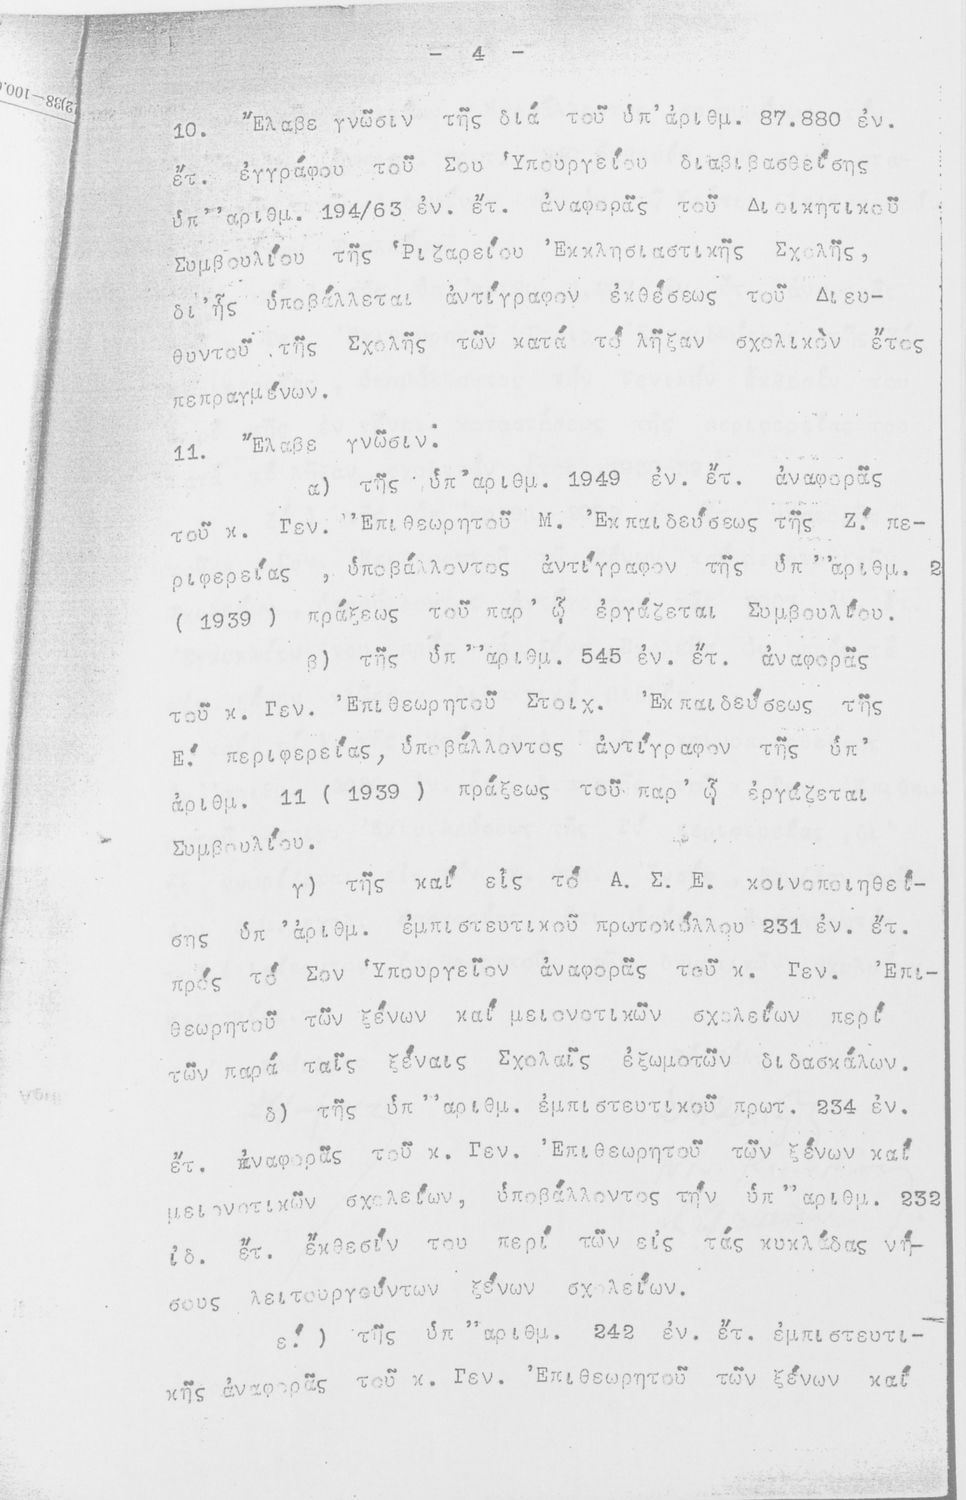 - 4 -
10. Ἔλαβε γνῶσιν τῆς διά τοῦ ὑπ' ἀριθμ. 87.880 ἐν.
ἔτ. ἐγγράφου τοῦ Σου Ὑπουργείου διαβιβασθείσης
ὑπ' ἀριθμ. 194/63 ἐν. ἔτ. ἀναφορᾶς τοῦ Διοικητικοῦ
Συμβουλίου τῆς Ῥιζαρείου Ἐκκλησιαστικῆς Σχολῆς,
δι' ἧς ὑποβάλλεται ἀντίγραφον ἐκθέσεως τοῦ Διευ-
θυντοῦ τῆς Σχολῆς τῶν κατά τό λῆξαν σχολικὸν ἔτος
πεπραγμένων.
11. Ἔλαβε γνῶσιν:
α) τῆς ὑπ' ἀριθμ. 1949 ἐν. ἔτ. ἀναφορᾶς
τοῦ κ. Γεν. Ἐπιθεωρητοῦ Μ. Ἐκπαιδεύσεως τῆς Ζ! πε-
ριφερείας , ὑποβάλλοντος ἀντίγραφον τῆς ὑπ' ἀριθμ. 2
( 1939 ) πράξεως τοῦ παρ' ᾧ ἐργάζεται Συμβουλίου.
β) τῆς ὑπ' ἀριθμ. 545 ἐν. ἔτ. ἀναφορᾶς
τοῦ κ. Γεν. Ἐπιθεωρητοῦ Στοιχ. Ἐκπαιδεύσεως τῆς
Ε! περιφερείας, ὑποβάλλοντος ἀντίγραφον τῆς ὑπ'
ἀριθμ. 11 ( 1939 ) πράξεως τοῦ παρ' ᾧ ἐργάζεται
Συμβουλίου.
γ) τῆς καί εἰς τό Α. Σ. Ε. κοινοποιηθεί-
σης ὑπ' ἀριθμ. ἐμπιστευτικοῦ πρωτοκόλλου 231 ἐν. ἔτ.
πρός τό Σον Ὑπουργεῖον ἀναφορᾶς τοῦ κ. Γεν. Ἐπι-
θεωρητοῦ τῶν ξένων καί μειονοτικῶν σχολείων περί
τῶν παρά ταῖς ξέναις Σχολαῖς ἐξωμοτῶν διδασκάλων.
δ) τῆς ὑπ' ἀριθμ. ἐμπιστευτικοῦ πρωτ. 234 ἐν.
ἔτ. ἀναφορᾶς τοῦ κ. Γεν. Ἐπιθεωρητοῦ τῶν ξένων καί
μειονοτικῶν σχολείων, ὑποβάλλοντος τήν ὑπ' ἀριθμ. 232
ἰδ. ἔτ. ἔκθεσίν του περί τῶν εἰς τάς κυκλάδας νή-
σους λειτουργούντων ξένων σχολείων.
ε! ) τῆς ὑπ' ἀριθμ. 242 ἐν. ἔτ. ἐμπιστευτι-
κῆς ἀναφορᾶς τοῦ κ. Γεν. Ἐπιθεωρητοῦ τῶν ξένων καί